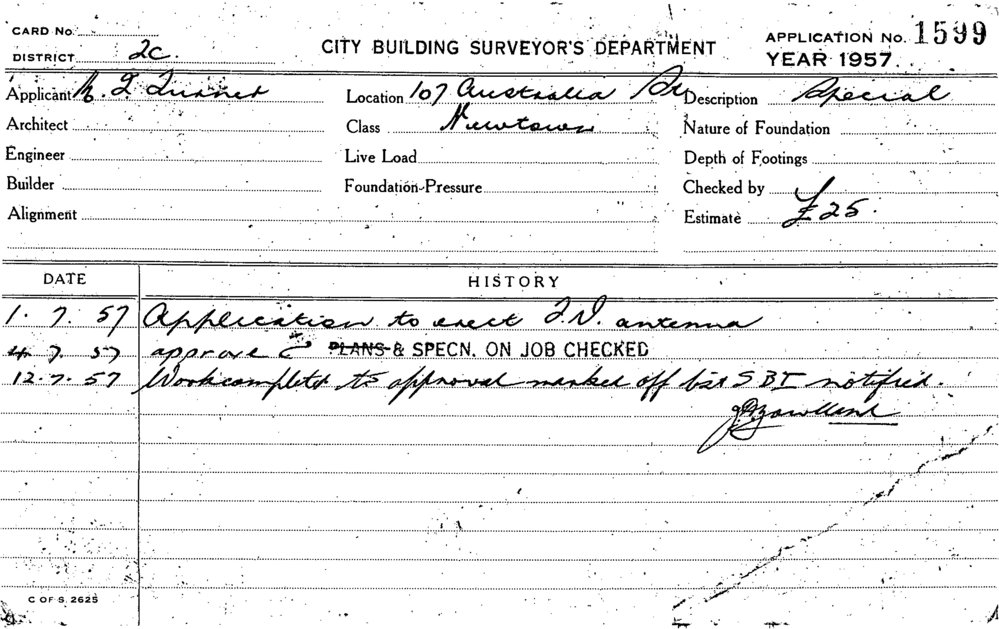 CARD No.
DISTRICT 2c.
CITY BUILDING SURVEYOR'S DEPARTMENT
APPLICATION No. 1599
YEAR 1957
Applicant Turner
Location 107 Australia St
Description Special
Architect
Class Newtown
Nature of Foundation
Engineer
Live Load
Depth of Footings
Builder
Foundation-Pressure
Checked by
Alignment
Estimate £25.
DATE HISTORY
1. 7. 57 Application to erect T.V. antenna
4. 7. 57 approve PLANS & SPECN. ON JOB CHECKED
12.7.57 Work completed to approval marked off list S B I notified.
C OF S. 2625